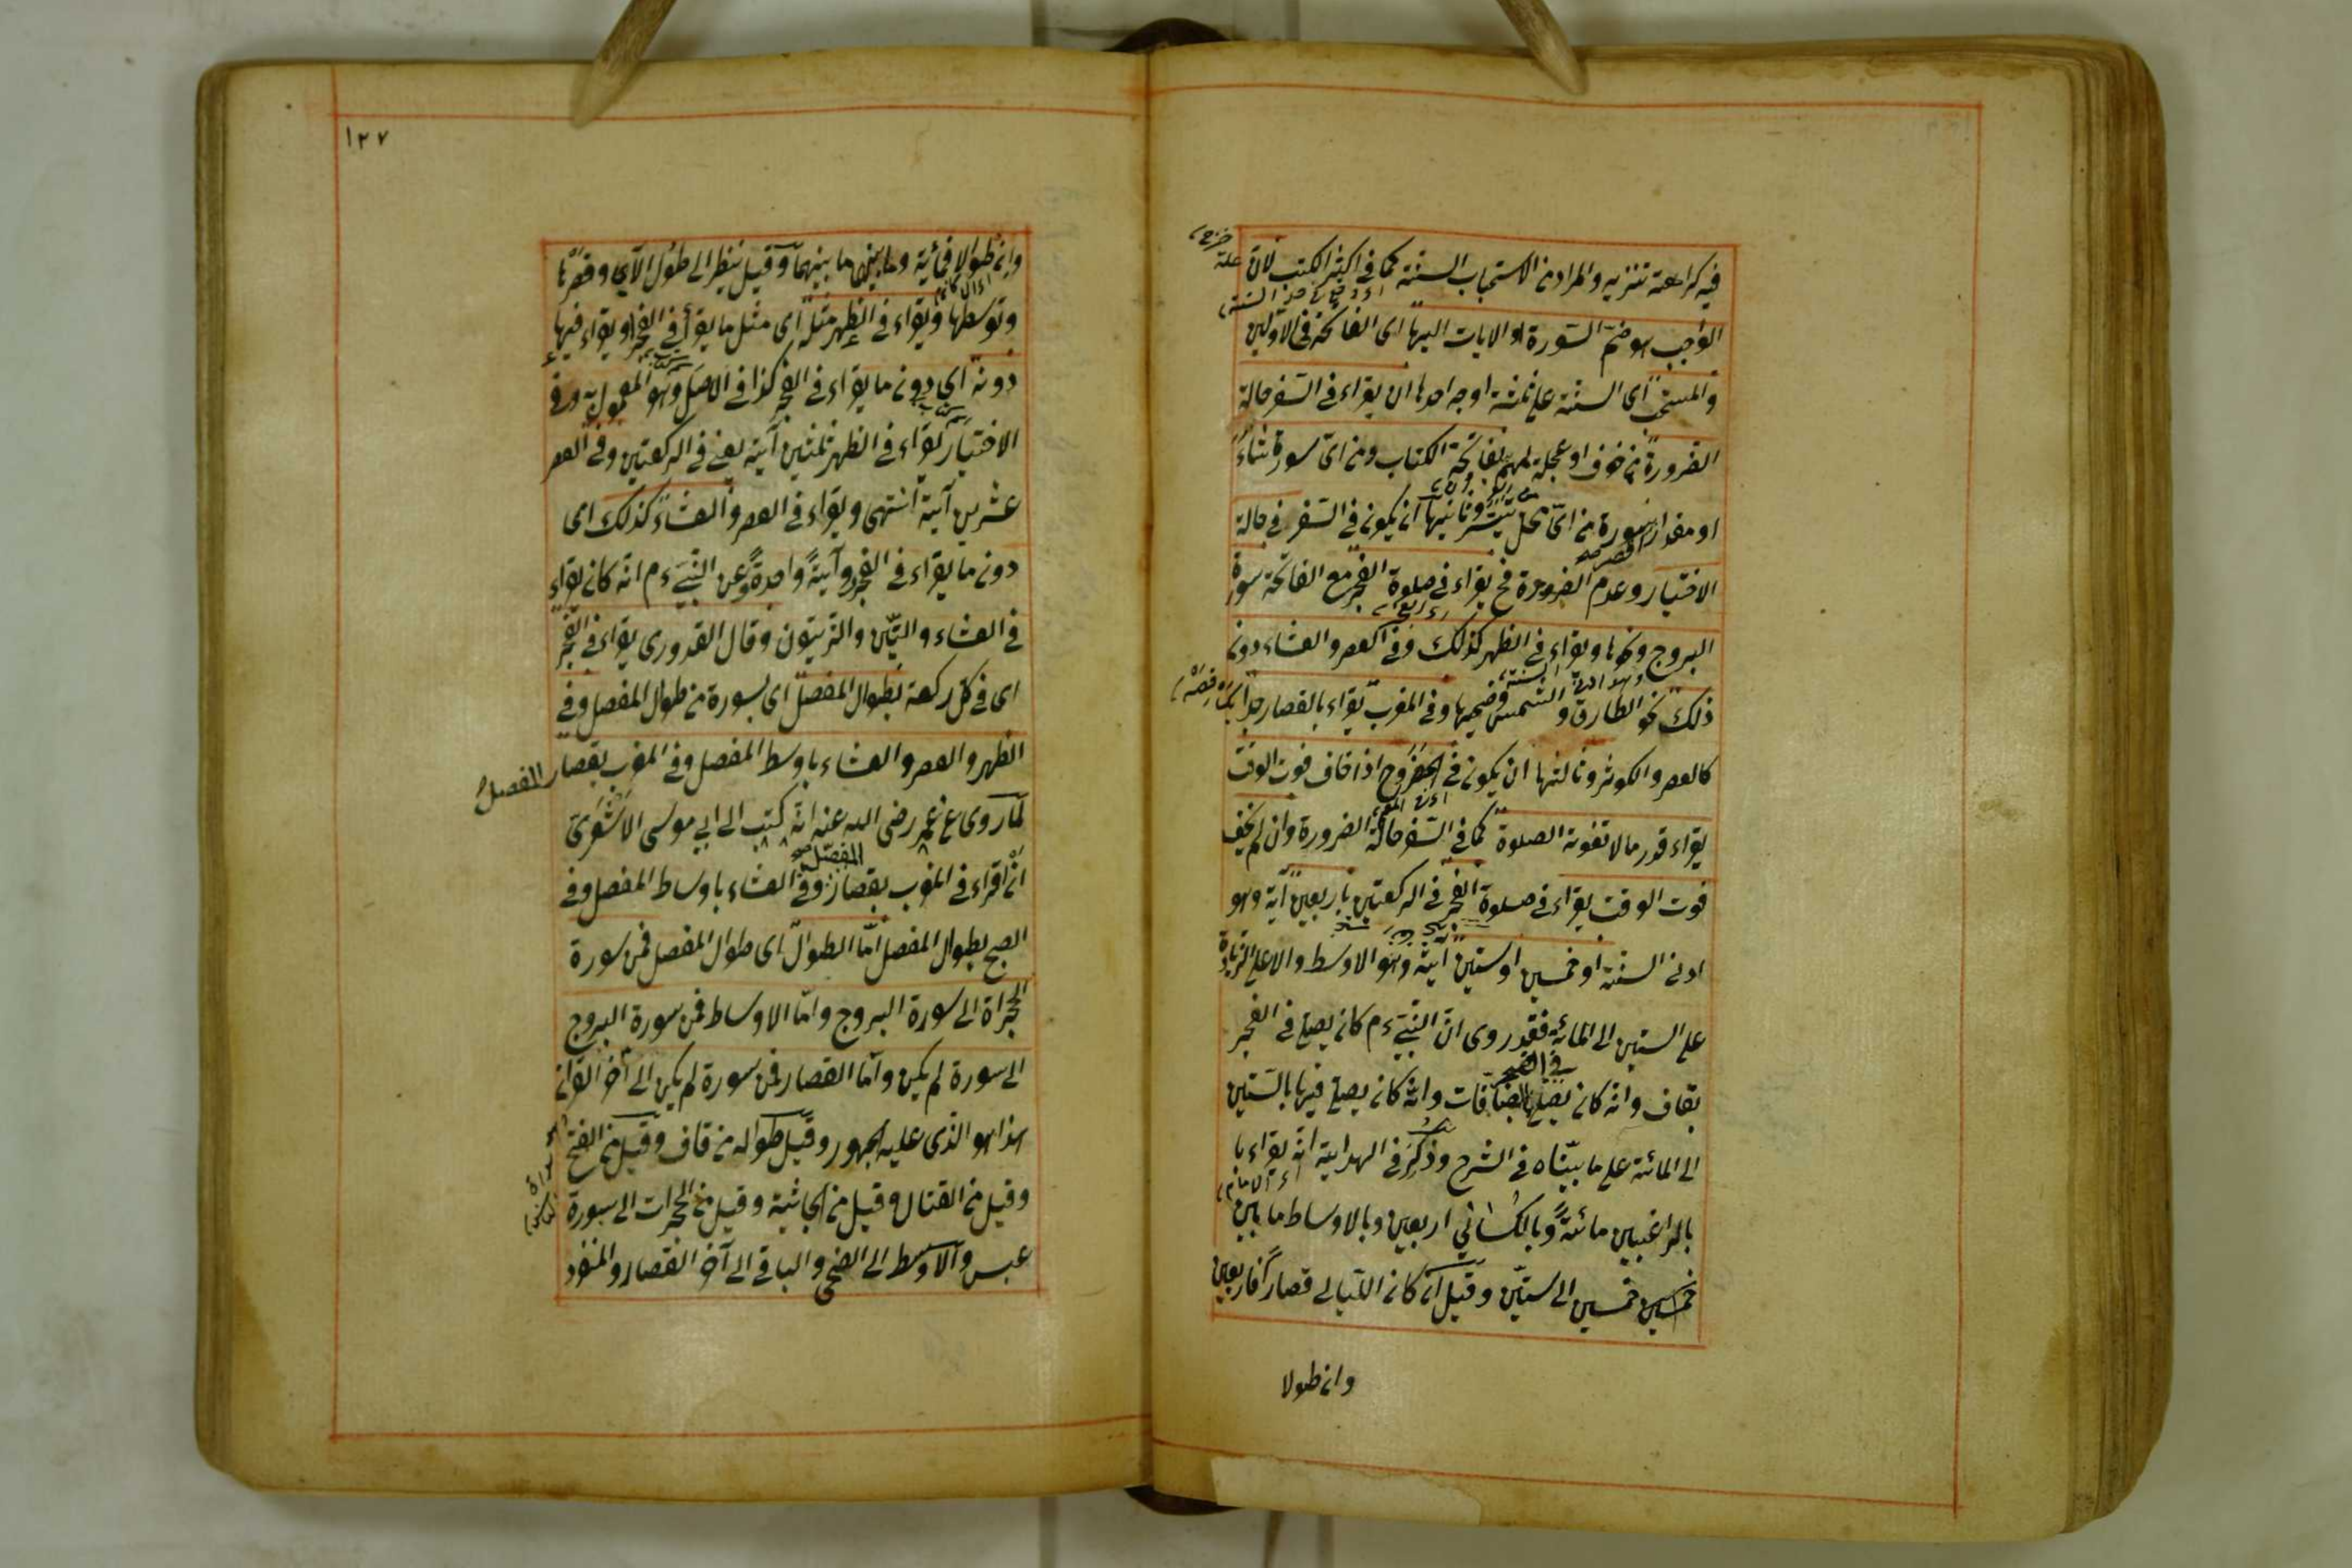 فيه كراهة تنزيه والمراد من الاستحباب السنة كما في اكثر الكتب لان
الواجب هو ضم السورة او الايات اليها اى الفاتحة في الاوليين
والمستحب اى السنة على ثلثة اوجه احدها ان يقراء في السفر حالة
الضرورة من خوف او عجلة بفاتحة الكتاب ومن اى سورة شاء
او مقدار اقصر سورة من اى محل تيسر وثانيها ان يكون في السفر في حالة
الاختيار وعدم الضرورة فح يقراء في صلوة الفجر مع الفاتحة سورة
البروج ونحوها ويقراء في الظهر كذلك وفي العصر والعشاء دون
ذلك نحو الطارق والشمس وضحيها وفي المغرب يقراء بالقصار جدا
كالعصر والكوثر وثالثها ان يكون في الحضر وح اذا خاف فوت الوقت
يقراء قدر ما لا تفوته الصلوة كما في السفر حالة الضرورة وان لم يخف
فوت الوقت يقراء في صلوة الفجر في الركعتين باربعين آية وهو
ادنى السنة او خمسين او ستين آية وهو الاوسط والاعلى الزيادة
على الستين الى المائة فقد روى ان النبى ءم كان يصلى في الفجر
بقاف وانه كان يصلى في الفجر بالصافات وانه كان يصلى فيها بالستين
الى المائة على ما بيناه في الشرح وذكر في الهداية انه يقراء با
بالراغبين مائة وبالكسالى اربعين وبالاوساط ما بين
خمسين خمسين الى ستين وقيل ان كان الليالى قصارا فاربعين
وان طولا
١٢٧
وان طوالا فمائة وما بينهما ما بينهما وقيل ينظر الى طول الآى وقصرها
وتوسطها ويقراء في الظهر مثله اى مثل ما يقرأ في الفجر او يقراء فيها
دونه اى دون ما يقراء في الفجر كذا في الاصل وهو المعمول به وفي
الاختيار يقراء في الظهر ثلثين آية يعنى في الركعتين وفي العصر
عشرين آية انتهى ويقراء في العصر والعشاء كذلك اى
دون ما يقراء في الفجر ولو آية واحدة وعن النبى ءم انه كان يقراء
في العشاء والتين والزيتون وقال القدورى يقراء في الفجر
اى في كل ركعة بطوال المفصل اى بسورة من طوال المفصل وفي
الظهر والعصر والعشاء باوسط المفصل وفي المغرب بقصار المفصل
لما روى عن عمر رضى الله عنه انه كتب الى ابى موسى الاشعرى
ان اقراء في المغرب بقصار المفصل وفي العشاء باوساط المفصل وفي
الصبح بطوال المفصل اما الطوال اى طوال المفصل فمن سورة
الحجراة الى سورة البروج واما الاوساط فمن سورة البروج
الى سورة لم يكن واما القصار فمن سورة لم يكن الى آخر القرآن
هذا هو الذى عليه الجمهور وقيل طواله من قاف وقيل من الفتح
وقيل من القتال وقيل من الجاثية وقيل من الحجرات الى سورة
عبس والاوسط الى الضحى والباقى الى آخر القصار والمنفرد